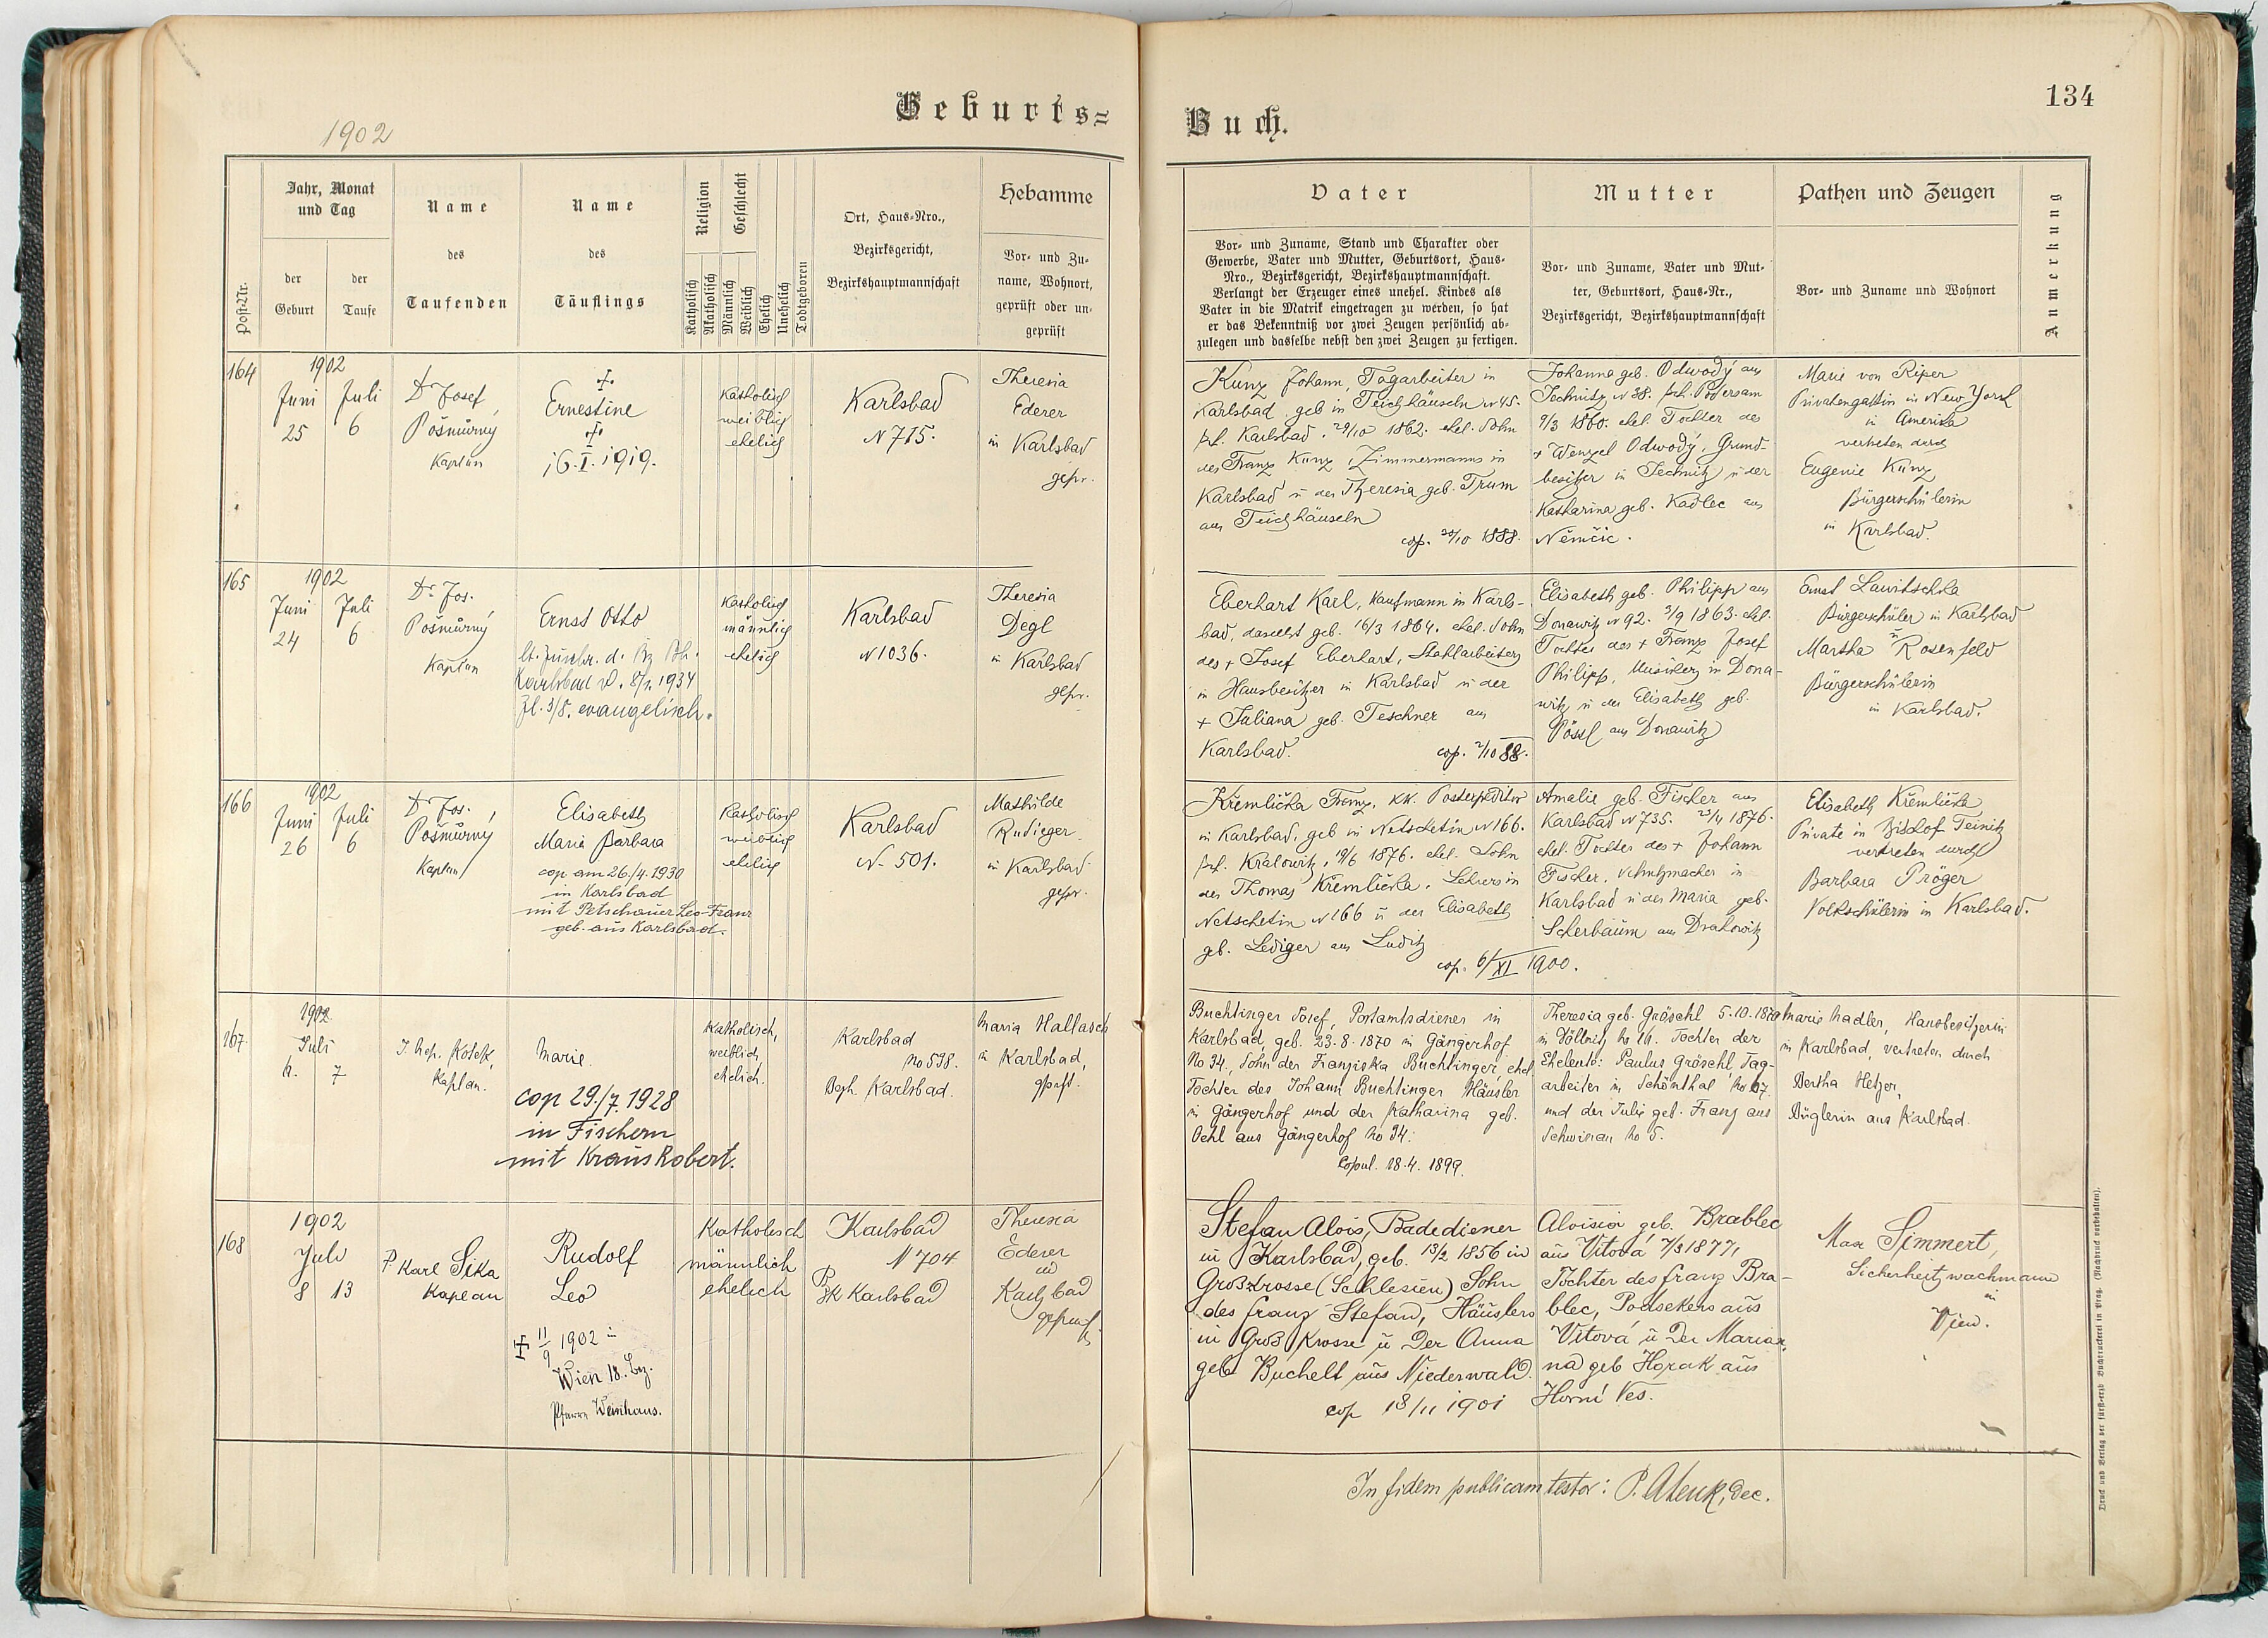 1902
Geburts=
Buch.
134
Post-Nr.
Jahr, Monat
und Tag
der
Geburt
der
Taufe
Name
des
Taufenden
Name
des
Täuflings
Religion
Katholisch
Akatholisch
Geschlecht
Männlich
Weiblich
Ehelich
Unehelich
Todtgeboren
Ort, Haus-Nro.,
Bezirksgericht,
Bezirkshauptmannschaft
Hebamme
Vor- und Zu-
name, Wohnort,
geprüft oder un-
geprüft
Vater
Vor- und Zuname, Stand und Charakter oder
Gewerbe, Vater und Mutter, Geburtsort, Haus-
Nro., Bezirksgericht, Bezirkshauptmannschaft.
Verlangt der Erzeuger eines unehel. Kindes als
Vater in die Matrik eingetragen zu werden, so hat
er das Bekenntniß vor zwei Zeugen persönlich ab-
zulegen und dasselbe nebst den zwei Zeugen zu fertigen.
Mutter
Vor- und Zuname, Vater und Mut-
ter, Geburtsort, Haus-Nr.,
Bezirksgericht, Bezirkshauptmannschaft
Pathen und Zeugen
Vor- und Zuname und Wohnort
Anmerkung
164
1902
Juni
25
Juli
6
Dr Josef
Pošmůrný
Kaplan
Ernestine
16.I.1919.
Katholisch
weiblich
ehelich
Karlsbad
N 715.
Theresia
Ederer
in Karlsbad
gepr.
Kunz Johann, Tagarbeiter in
Karlsbad, geb in Teichhäuseln N 45.
Bzk. Karlsbad, 29/10 1862. ehel. Sohn
des Franz Kunz, Zimmermanns in
Karlsbad u der Theresia geb. Trum
aus Teichhäuseln
cop. 20/10 1888.
Johanna geb. Odwody aus
Jechnitz N 38. Bzk. Podersam
9/3 1860. ehel. Tochter des
+ Wenzel Odwody, Grund-
besitzer in Jechnitz u der
Katharina geb. Kadlec aus
Němčic.
Marie von Riper
Privatengattin in New York
in Amerika
vertreten durch
Eugenie Kunz
Bürgerschülerin
in Karlsbad.
165
1902
Juni
24
Juli
6
Dr. Jos.
Pošmůrný
Kaplan
Ernst Otto
Karlsbad v. 8/1. 1934
Zl. 3/8. evangelisch.
Katholisch
männlich
ehelich
Karlsbad
N 1036.
Theresia
Degl
in Karlsbad
gepr.
Eberhart Karl, Kaufmann in Karls-
bad, daselbst geb. 16/3 1864. ehel. Sohn
des + Josef Eberhart, Stahlarbeiters
u Hausbesitzer in Karlsbad u der
+ Juliana geb. Teschner aus
Karlsbad.
cop. 2/10 88.
Elisabeth geb. Philipp aus
Donawitz N 92. 3/9 1863. ehel.
Tochter des + Franz Josef
Philipp, Musikers in Dona-
witz u der Elisabeth geb.
Pössl aus Donawitz
Ernst Lawitschka
Bürgerschüler in Karlsbad
u
Martha Rosenfeld
Bürgerschülerin
in Karlsbad.
166
1902
Juni
26
Juli
6
Dr Jos.
Pošmůrný
Kaplan
Elisabeth
Maria Barbara
cop am 26./4. 1930
in Karlsbad
mit Petschauer Leo Franz
geb. aus Karlsbad.
Katholisch
weiblich
ehelich
Karlsbad
N. 501.
Mathilde
Rudieger
in Karlsbad
gepr.
Křemlička Franz, KK. Postexpeditor
in Karlsbad, geb in Netschetin N 166.
Bzk. Kralowitz, 19/6 1876. ehel. Sohn
des Thomas Křemlička, Lehrers in
Netschetin N 166 u der Elisabeth
geb. Lediger aus Luditz
cop. 6/XI 1900.
Amalie geb. Fischer aus
Karlsbad N 735. 23/4 1876.
ehel. Tochter des + Johann
Fischer, Schuhmacher in
Karlsbad u der Maria geb.
Scherbaum aus Drahowitz
Elisabeth Křemlička
Private in Bischof Teinitz
vertreten durch
Barbara Pröger
Volkschülerin in Karlsbad.
167.
1902
Juli
4. 7
J. Nep. Košek,
Kaplan.
Marie.
cop 29./7. 1928
in Fischern
mit Kraus Robert.
Katholisch,
weiblich,
ehelich.
Karlsbad
No 598.
Bzh. Karlsbad.
Maria Hallasch
in Karlsbad,
gprft.
Buchtinger Josef, Postamtsdiener in
Karlsbad, geb. 23.8.1870 in Gängerhof
No 34, Sohn der Franziska Buchtinger, ehel.
Tochter des Johann Buchtinger Häusler
in Gängerhof und der Katharina geb.
Oehl aus Gängerhof No 34.
Copul. 18.4. 1899.
Theresia geb. Gröschl 5.10.1870
in Töllnitz No 16. Tochter der
Eheleute: Paulus Gröschl, Tag-
arbeiter in Schönthal No 27.
und der Julie geb. Franz aus
Schwinau No 5.
Marie Nadler, Hausbesitzerin
in Karlsbad, vertreten durch
Bertha Hetzer,
Büglerin aus Karlsbad.
168
1902
Juli
8 13
P Karl Sika
Kaplan
Rudolf
Leo
11/9 1902 in
Wien 18. Bez.
Pfarre Weinhaus.
Katholisch
männlich
ehelich
Karlsbad
N 704
BK Karlsbad
Theresia
Ederer
in
Karlsbad
geprüft
Stefan Alois, Badediener
in Karlsbad, geb. 13/2 1856 in
Großkrosse (Schlesien) Sohn
des Franz Stefan, Häuslers
in Groß Krosse u Der Anna
geb Buchelt aus Niederwald.
cop 18/11 1901
Aloisia geb. Brablec
aus Vitová 7/3 1877,
Tochter des Franz Bra-
blec, Podsekers aus
Vitová u Der Marian-
na geb Horak aus
Horní Ves.
Max Simmert,
Sicherheitswachmann
in
Wien.
In fidem publicam testor: P. Alenk, Dec.
Druck und Verlag der fürsterzb. Buchdruckerei in Prag. (Nachdruck vorbehalten).